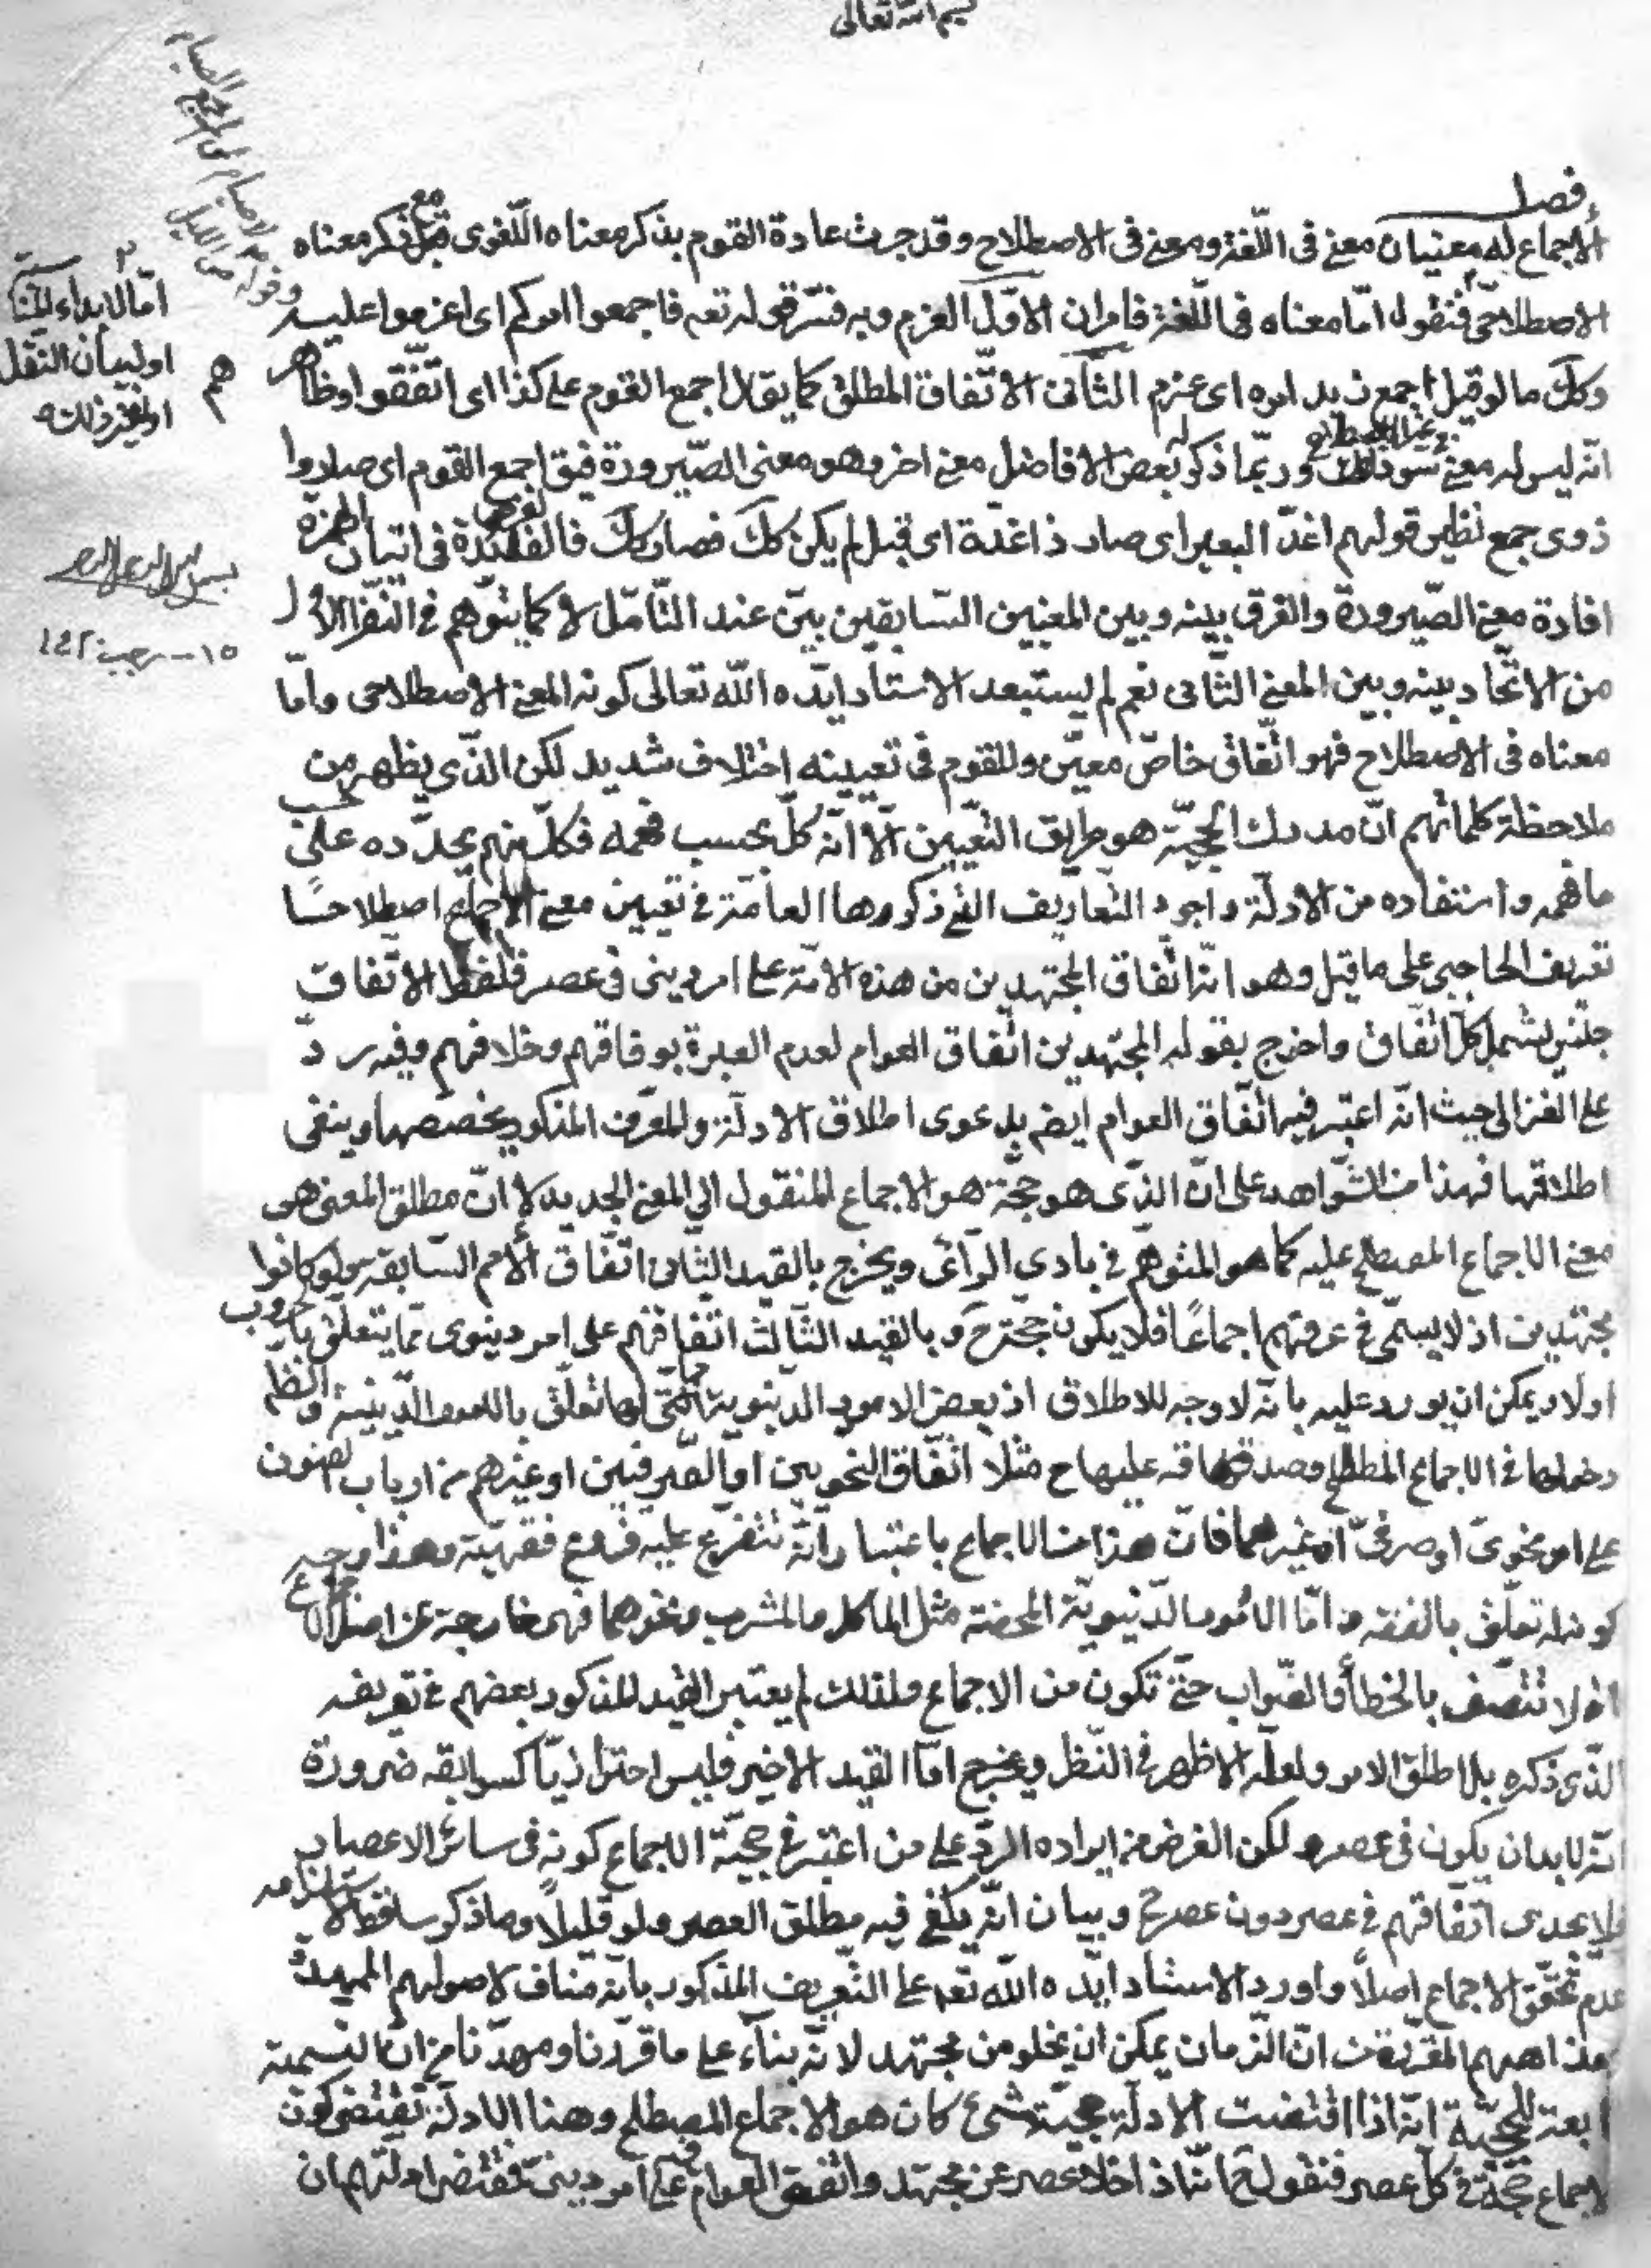 بسم الله تعالى
فصل
الاجماع له معنيان معنى فى اللّغة ومعنى فى الاصطلاح وقد جرت عادة القوم بذكر معناه اللّغوى قبل ذكر معناه
الاصطلاحى فنقول امّا معناه فى اللّغة فامران الاوّل العزم وبه فسّر قوله تعه فاجمعوا امركم اى اعزموا عليه
وكك ما لو قيل اجمع زيد امره اى عزم الثّانى الاتّفاق المطلق كما يقال اجمع القوم على كذا اى اتّفقوا وظاهر هم
انّه ليس له معنى سوى ذلك وربّما ذكر له بعض الافاضل معنى اخر وهو معنى الصّيرورة فيق اجمع القوم اى صاروا
ذوى جمع نظير قولهم اغدّ البعير اى صار ذا غدّة اى قبل لم يكن كك فصار كك فالفائدة فى اتيان الهمزة
افادة معنى الصّيرورة والفرق بينه وبين المعنيين السّابقين بيّن عند التّامّل لا كما يتوّهم فى النّظر الاوّل
من الاتّحاد بينه وبين المعنى الثّانى نعم لم يستبعد الاستاد ايّده الله تعالى كونه المعنى الاصطلاحى وامّا
معناه فى الاصطلاح فهو اتّفاق خاصّ معيّن وللقوم فى تعيينه اختلاف شديد لكن الّذى يظهر من
ملاحظة كلماتهم انّ مدرك الحجيّة هو طريق التّعيين الّا انّه كلّ بحسب فهمه فكلّ منهم يحدّده على حسب
ما فهمه واستفاده من الادلّة واجود التّعاريف الّتى ذكروها العامّة فى تعيين معنى الاجماع اصطلاحًا
تعريف الحاجبى على ما قيل وهو انّه اتّفاق المجتهدين من هذه الامّة على امر دينى فى عصر فلفظ الاتّفاق
جنس يشمل كلّ اتّفاق واخرج بقوله المجتهدين اتّفاق العوام لعدم العبرة بوفاقهم وخلافهم وفيه ردّ
على الغزالى حيث انّه اعتبر فيه اتّفاق العوام ايضا بدعوى اطلاق الادلّة والمعرّف المذكور يخصصها وينفى
اطلاقها فهذا من الشّواهد على انّ الّذى هو حجّة هو الاجماع المنقول الى المعنى الجديد لا انّ مطلق المعنى هى
معنى الاجماع المصطلح عليه كما هو المتوهّم فى بادى الرّأى ويخرج بالقيد الثّانى اتّفاق الامم السّابقة ولو كانوا
مجتهدين اذ لا يسمّى فى عرفهم اجماعًا فلا يكون حجّة ح وبالقيد الثّالث اتّفاقهم على امر دينوى ممّا يتعلّق بالحروب
اولا ويمكن ان يورد عليه بانّه لا وجه للاطلاق اذ بعض الامور الدّنيوية ممّا لها تعلّق بالامور الدّينيّة والظّ
دخولها فى الاجماع المصطلح وصدقه عليها ح مثلا اتّفاق النّحويين او الصّرفيين او غيرهم من ارباب الفنون
على امر نحوىّ او صرفىّ او غيرهما فانّ هذا من الاجماع باعتبار انّه تتفرّع عليه فروع فقهيّة وهذا وجه
كونه له تعلّق بالفقه وامّا الامور الدّنيويّة المحضة مثل الماكل والمشرب ونحوهما فهى خارجة عن اصل الاجماع
اذ لا تتّصف بالخطأ والصّواب حتّى تكون من الاجماع ولذلك لم يعتبر القيد المذكور بعضهم فى تعريفه
الّذى ذكره بل اطلق الامر ولعلّه الاظهر فى النّظر ويخرج امّا القيد الاخير فليس احترازيّا كسوابقه ضرورة
انّه لا بد ان يكون فى عصر ولكن الغرض من ايراده الردّ على من اعتبر فى حجيّة الاجماع كونه فى سائر الاعصار
فلا يجدى اتّفاقهم فى عصر دون عصر ح وبيان انّه يكفى فيه مطلق العصر ولو قليلًا وما ذكر ساقط لاستلزامه
عدم تحقّق الاجماع اصلًا واورد الاستاد ايّده الله تعه على التّعريف المذكور بانّه مناف لاصولهم الممهدة
ومذاهبهم المقرّرة انّ الزّمان يمكن ان يخلو من مجتهد لانّه بناء على ما قرّرنا ومهدّنا من انّ التسمية
تابعة للحجيّة انّه اذا اقتضت الادلّة حجيّة شىء كان هو الاجماع المصطلح وهنا الادلّة تقتضى كون
الاجماع حجّة فى كلّ عصر فنقول ح انّه اذا خلا عصر عن مجتهد واتّفق العوام فيه على امر دينىّ فمقتضى ادلّتهم ان
امّا لابداء المناسبة
او لبيان النّقل
او لغير ذلك منه
١٥ - رجب ١٤٢